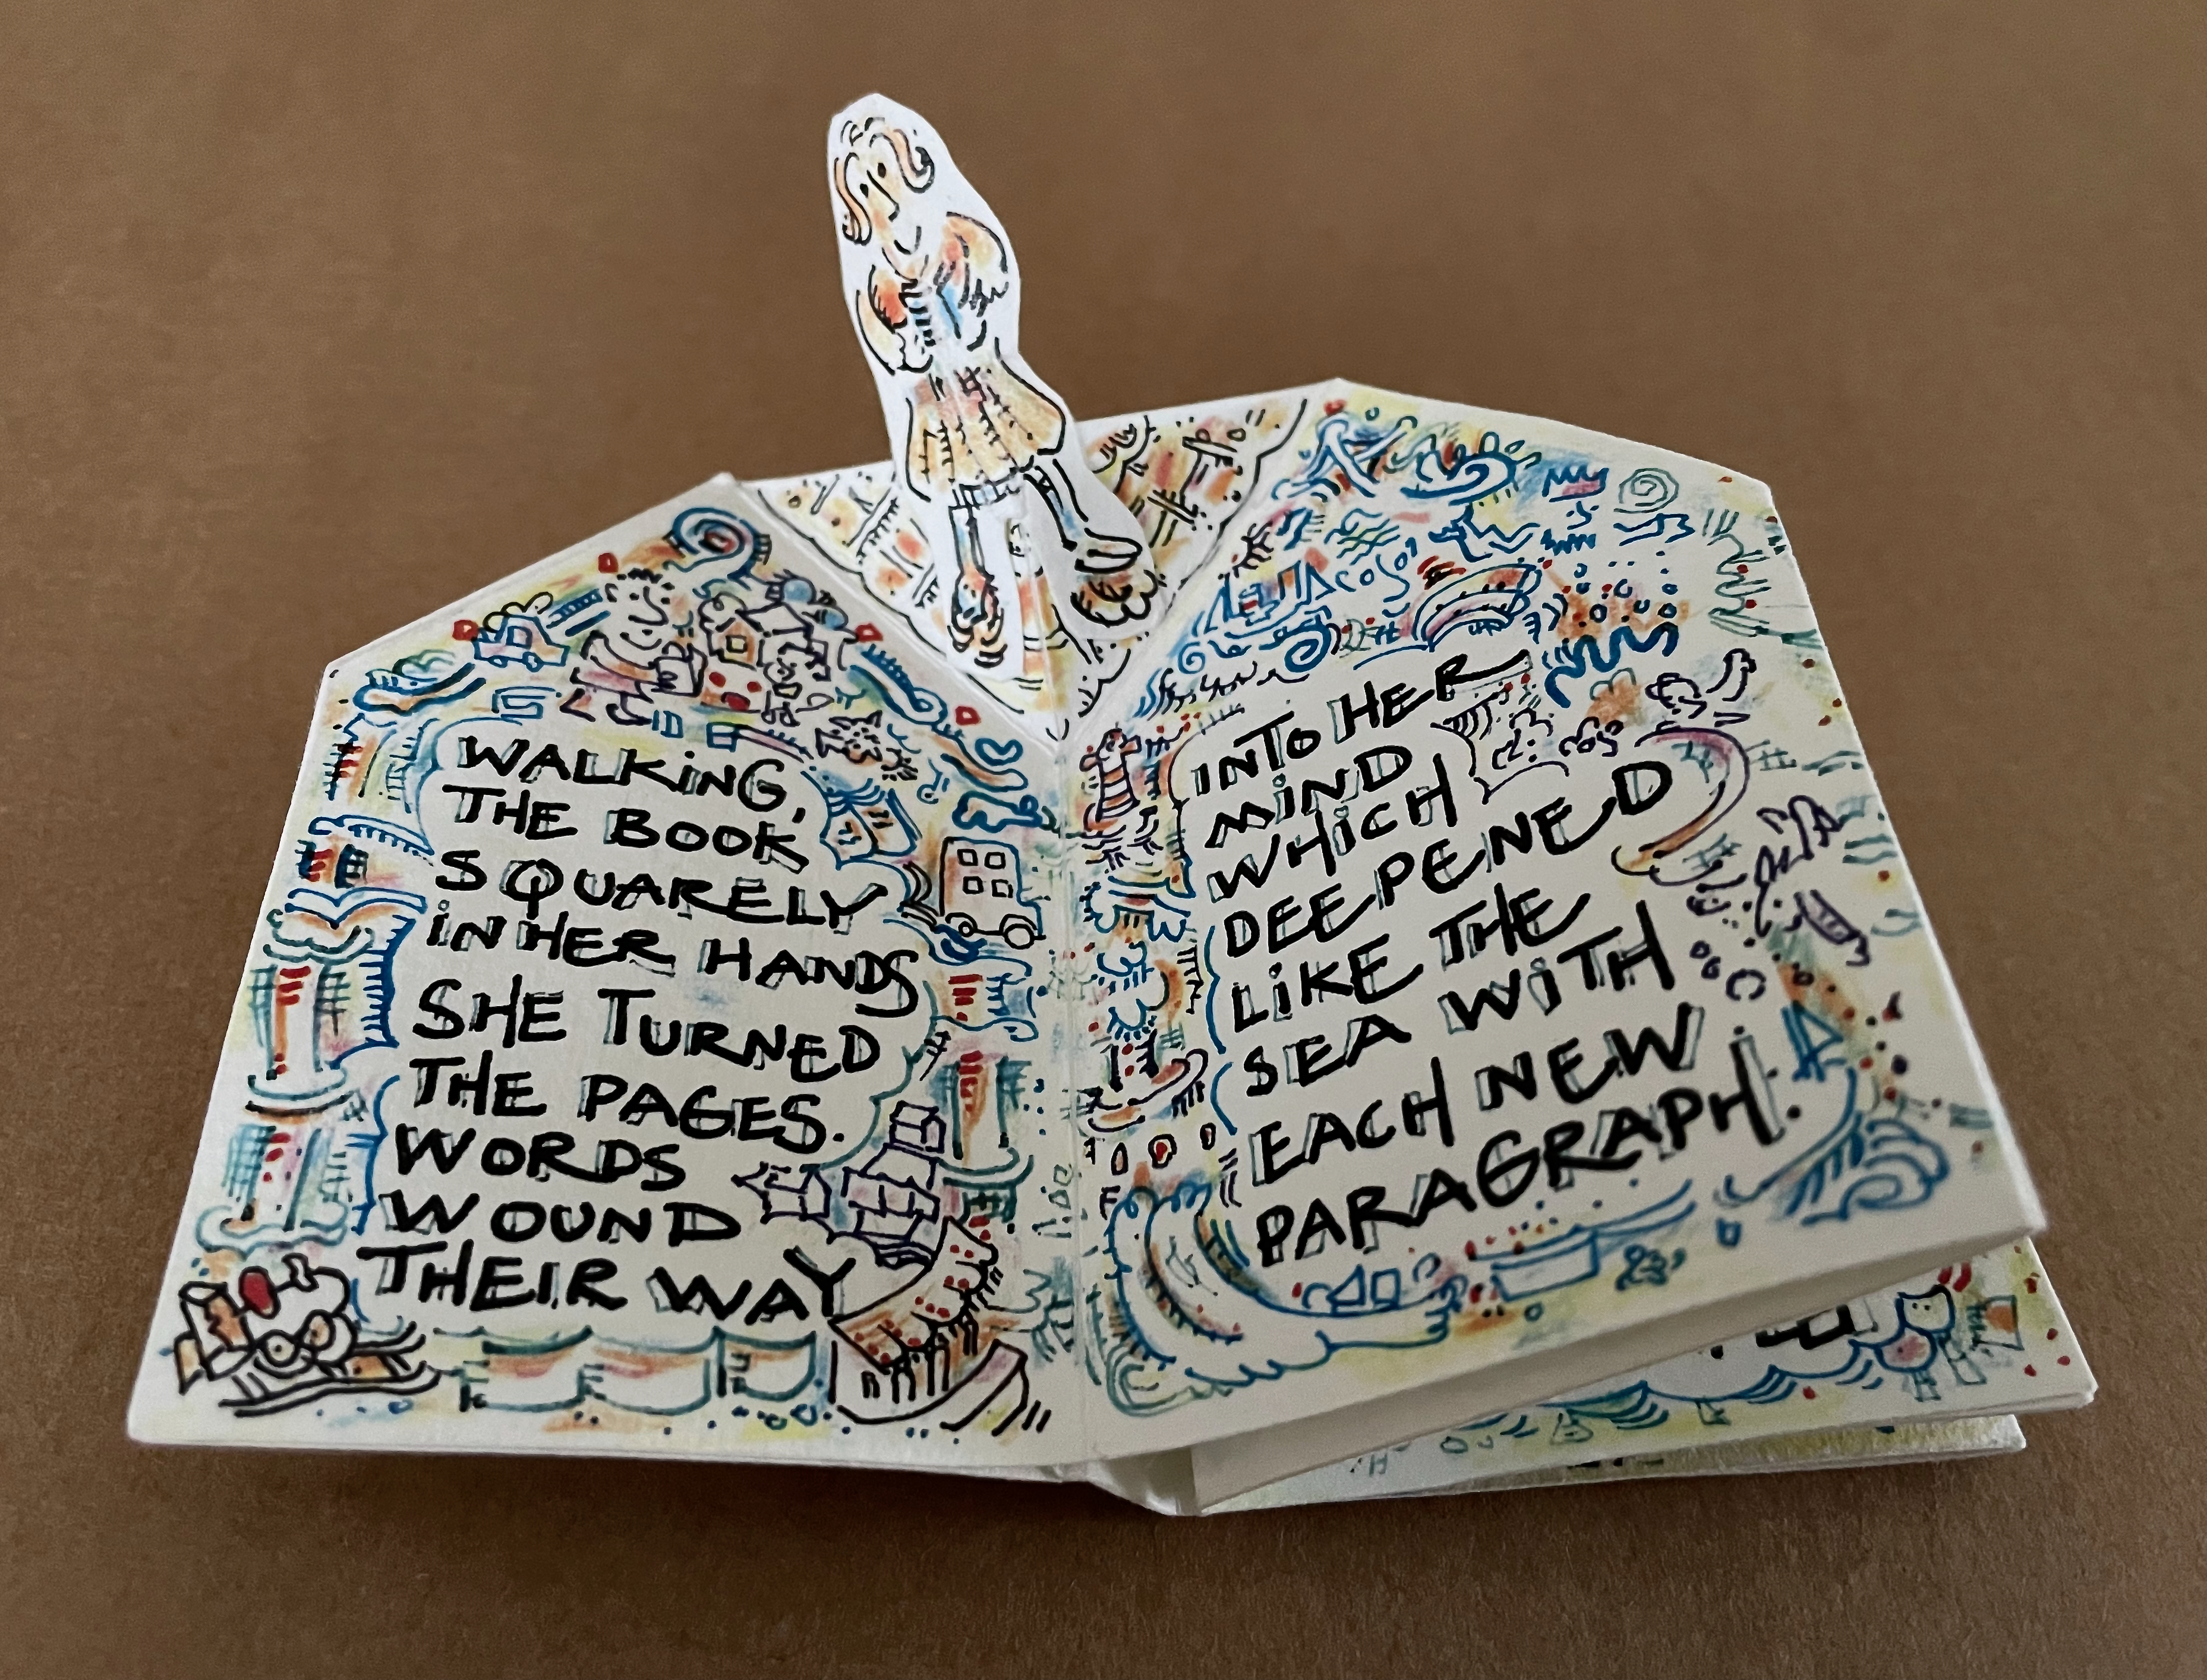 WALKING,
THE BOOK
SQUARELY
IN HER HANDS
SHE TURNED
THE PAGES.
WORDS
WOUND
THEIR WAY
INTO HER
MIND
WHICH
DEEPENED
LIKE THE
SEA WITH
EACH NEW
PARAGRAPH.